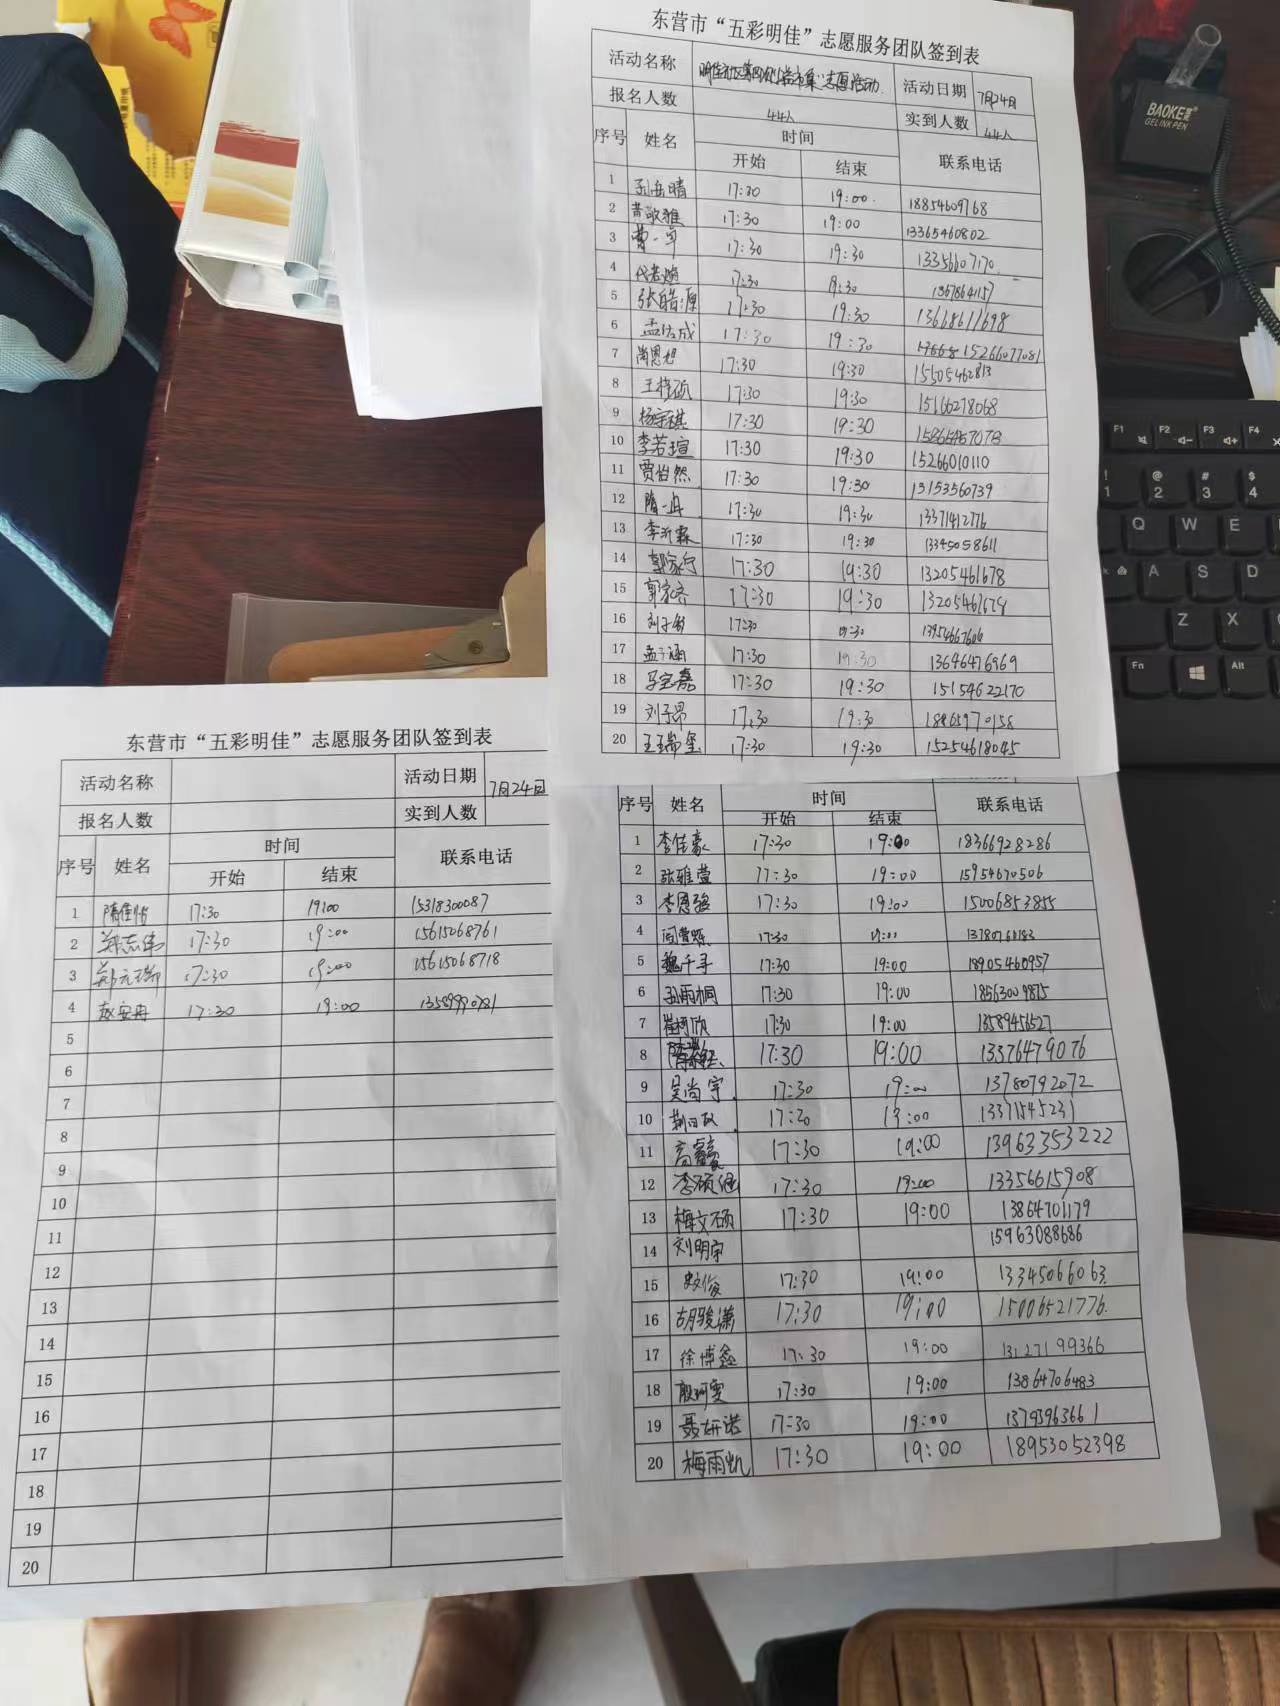 东营市“五彩明佳”志愿服务团队签到表
活动名称 志愿活动 活动日期 7月24日
报名人数 44人 实到人数 44人
序号 姓名 时间 联系电话
开始 结束
1 17:30 19:00 18854609768
2 黄敬雅 17:30 19:00 13365460802
3 曹一宁 17:30 19:30 13356607170
4 17:30 19:30 1367864157
5 张皓源 17:30 19:30 13668611698
6 17:30 19:30 15266077081
7 尚恩旭 17:30 19:30 15505462813
8 王梓硕 17:30 19:30 15166278068
9 杨宗祺 17:30 19:30
10 李若瑄 17:30 19:30 15266010110
11 贾怡然 17:30 19:30 13153560739
12 隋一冉 17:30 19:30 13371412776
13 李沂霖 17:30 19:30 13345058611
14 郭家宁 17:30 19:30 13205461678
15 郭家齐 17:30 19:30 13205461678
16 17:30 19:30 13954667606
17 孟子涵 17:30 19:30 13646476969
18 17:30 19:30 15154622170
19 刘子昂 17:30 19:30 18865970158
20 王瑞玺 17:30 19:30 15254618045
东营市“五彩明佳”志愿服务团队签到表
活动名称 活动日期 7月24日
报名人数 实到人数
序号 姓名 时间 联系电话
开始 结束
1 隋佳怡 17:30 19:00 15318300087
2 郑志伟 17:30 19:00 15615068761
3 郑元瑞 17:30 19:00 15615068718
4 赵安冉 17:30 19:00
5
6
7
8
9
10
11
12
13
14
15
16
17
18
19
20
序号 姓名 时间 联系电话
开始 结束
1 李佳豪 17:30 19:00 18366928286
2 张雅萱 17:30 19:00 15954670506
3 李恩骆 17:30 19:00 15006853855
4 17:30 19:00 13780760183
5 魏千寻 17:30 19:00 18905460957
6 孙雨桐 17:30 19:00 18563009875
7 崔珂欣 17:30 19:00 13589456527
8 17:30 19:00 13376479076
9 吴尚宇 17:30 19:00 13780792072
10 17:30 19:00 13371545231
11 17:30 19:00 13963353222
12 李硕涵 17:30 19:00 13356615908
13 梅文硕 17:30 19:00 13864701179
14 刘明宗 15963088686
15 17:30 19:00 13345066063
16 胡骏潇 17:30 19:00 15006521776
17 徐博鑫 17:30 19:00 13127199366
18 殷珂雯 17:30 19:00 13864706483
19 聂妍诺 17:30 19:00 13793963661
20 梅雨凯 17:30 19:00 18953052398
BAOKE
GELINK PEN
F1 F2 F3 F4
! 1 @ 2 # 3 $ 4
Q W E
A S D
Z X
Fn Alt